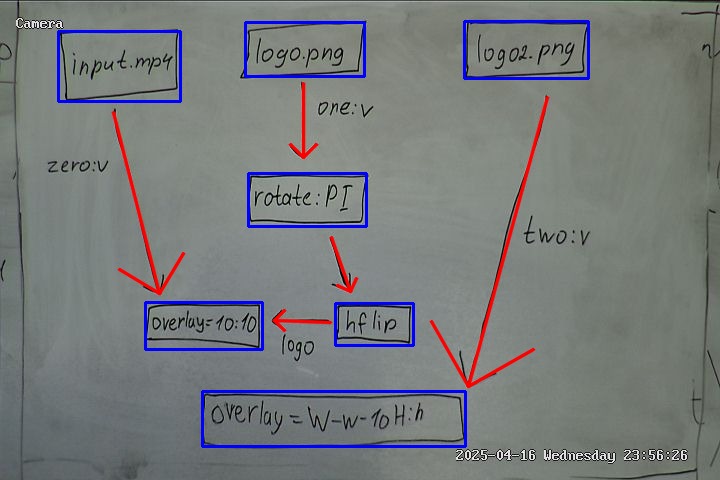 Camera
input.mp4
logo.png
logo2.png
one:v
zero:v
rotate:PI
two:v
overlay=10:10
hflip
logo
overlay=W-w-10H:h
2025-04-16 Wednesday 23:56:26